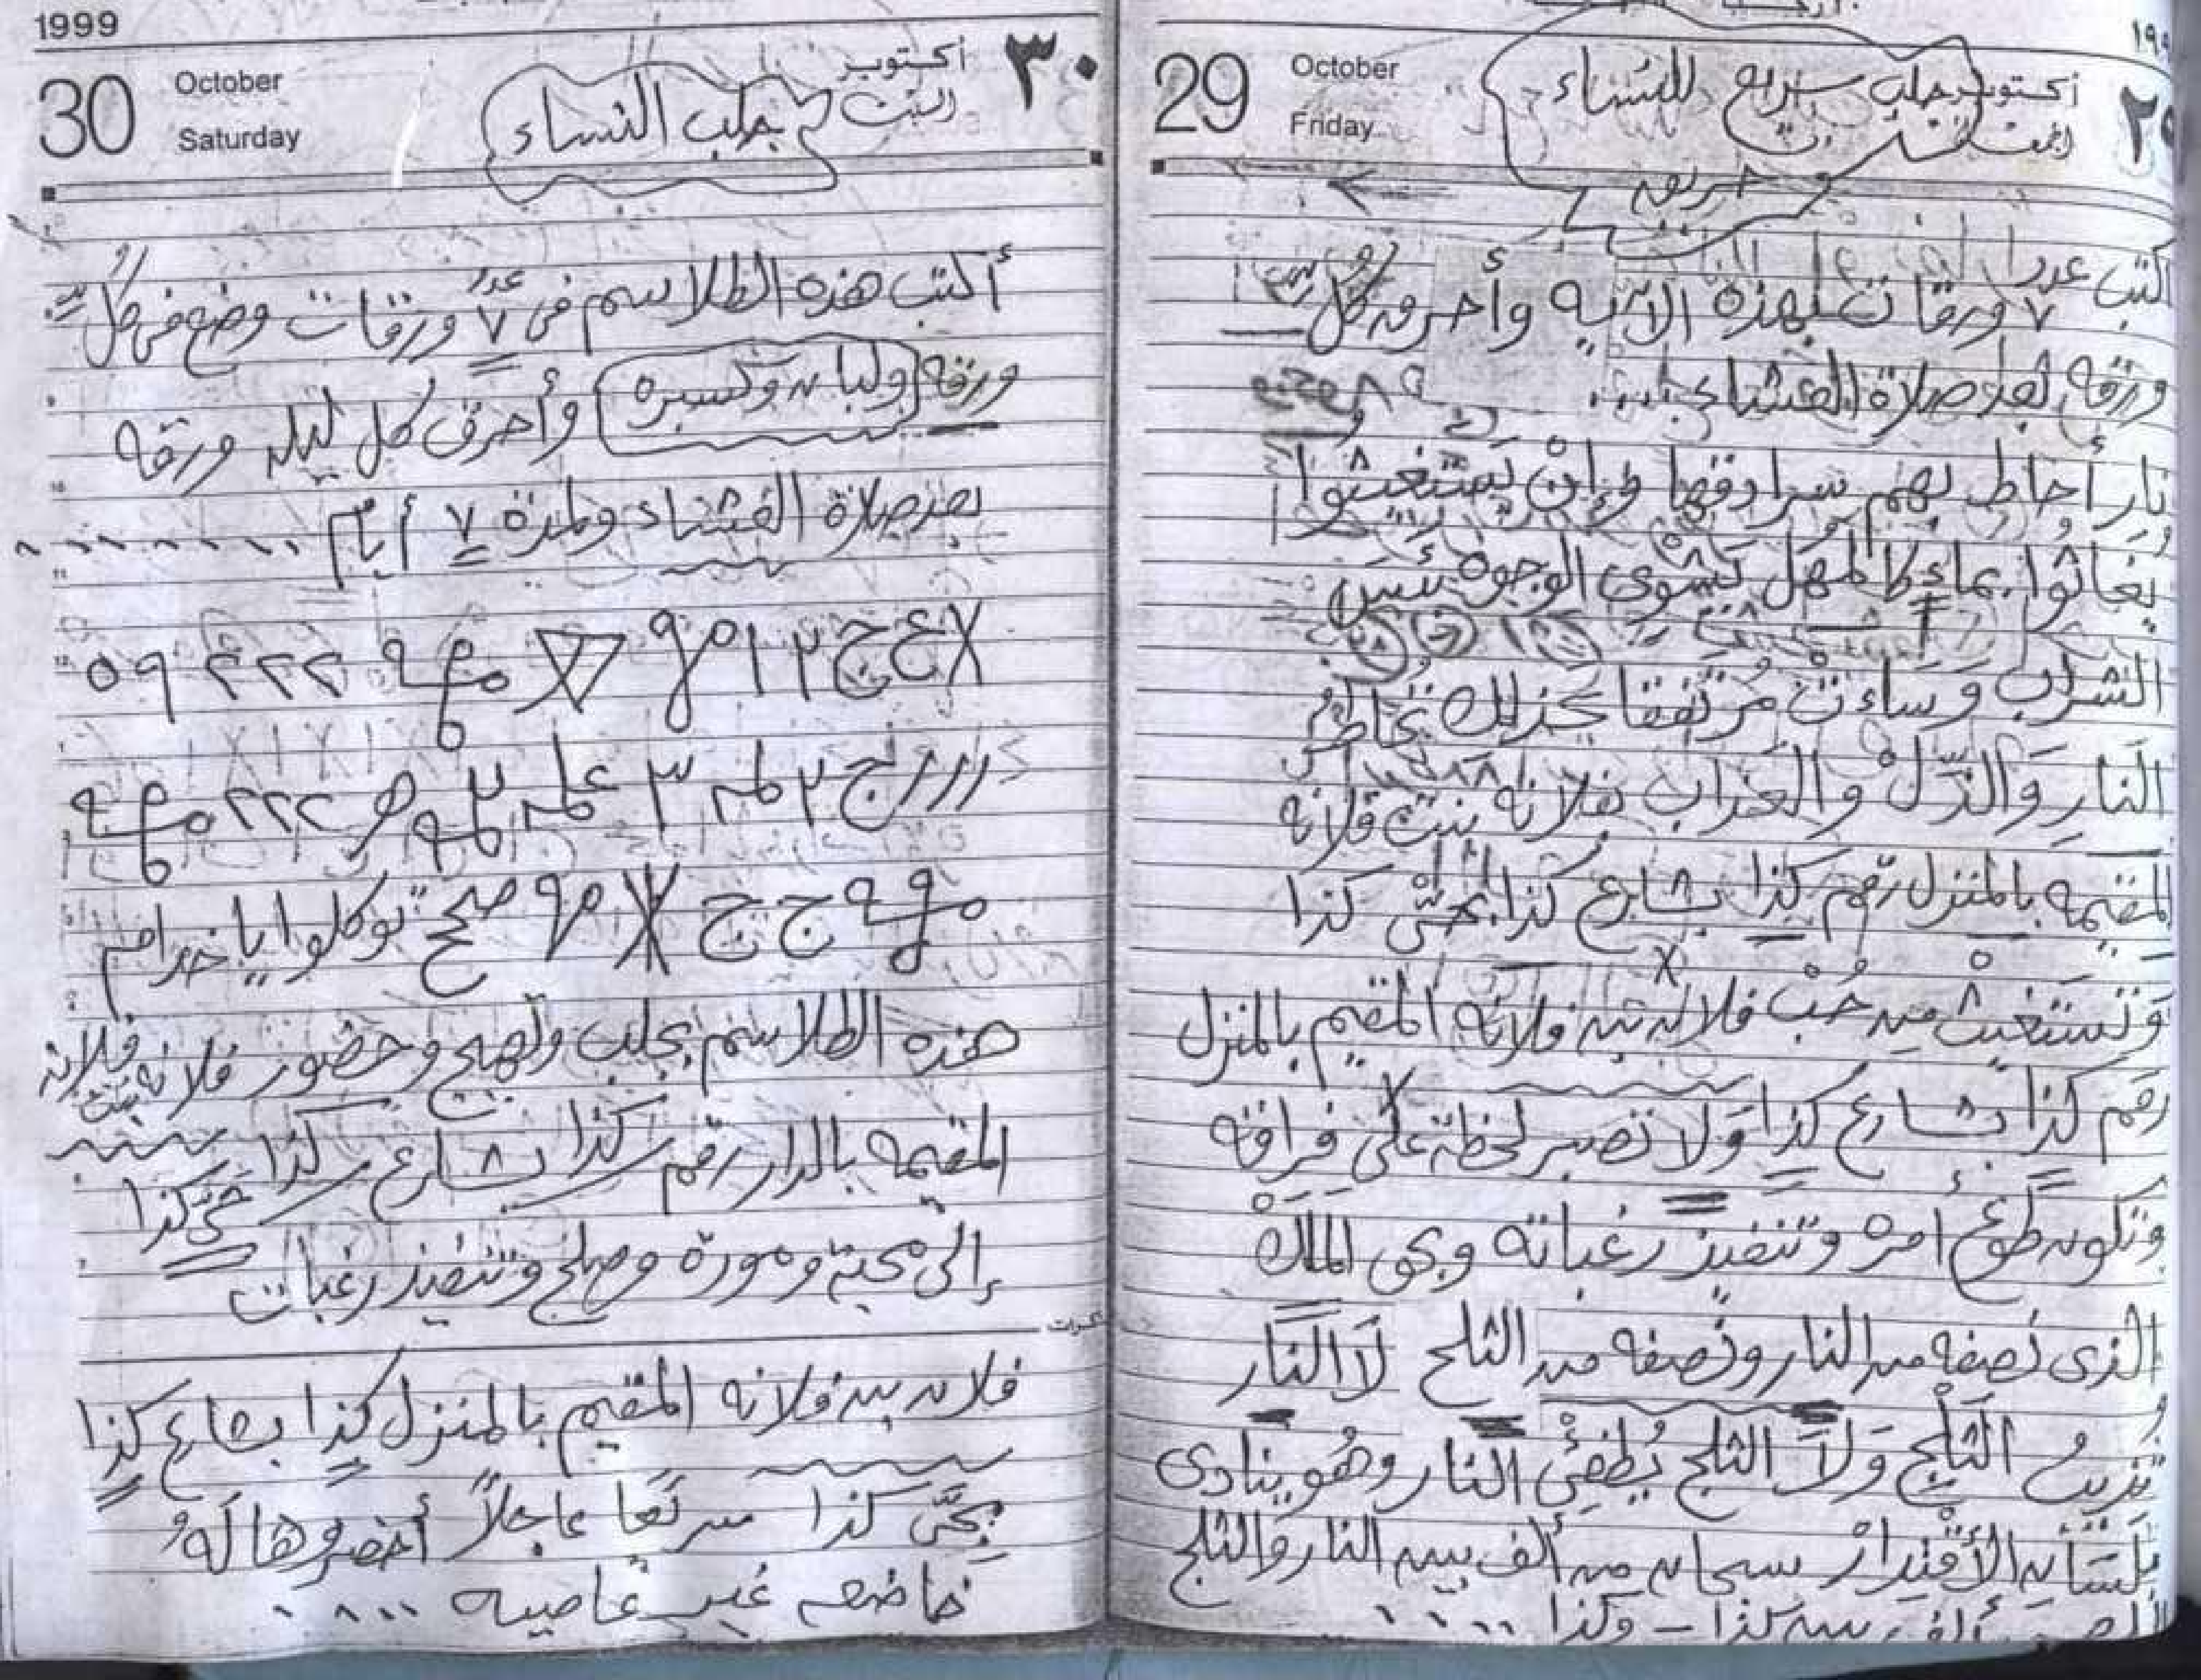 ١٩٩
29
October
Friday
أكتوبر
الجمعة
جلب سريع للنساء
حريق
اكتب عدد
٧ ورقات بهذه الآيه وأحرق كل
ورقه بعد صلاة العشاء
نار أحاط بهم سرادقها وإن يستغيثوا
يغاثوا بماء كالمهل يشوى الوجوه بئس
الشراب وساءت مرتفقا كذلك
النار والذل والعذاب فلانه بنت فلانه
المقيمه بالمنزل رقم كذا بشارع كذا بحى كذا
وتستغيث من حب فلان بن فلانه المقيم بالمنزل
رقم كذا بشارع كذا ولا تصبر لحظة على فراقه
وتكون طوع أمره وتنفيذ رغباته وبحق الملك
الذى نصفه من النار ونصفه من الثلج لا النار
تذيب الثلج ولا الثلج يطفئ النار وهو ينادى
بلسان الأقتدار سبحان من ألف بين النار والثلج
ألف بين كذا - وكذا ....
1999
30
October
Saturday
أكتوبر
السبت
٣٠
جلب النساء
أكتب هذه الطلاسم فى عدد ٧ ورقات وضع فى كل
ورقه ولبان وكسبره وأحرق كل ليله ورقه
بعد صلاة العشاء ولمدة ٧ أيام
صح توكلوا يا خدام
هذه الطلاسم بجلب وتهيج وحضور فلانه بنت فلانه
المقيمه بالدار رقم كذا بشارع كذا بحى كذا
إلى محبة ومودة وصلح وتنفيذ رغبات
فلان بن فلانه المقيم بالمنزل كذا بشارع كذا
بحى كذا سريعا عاجلاً أحضروها له
خاضعه غير عاصيه ....